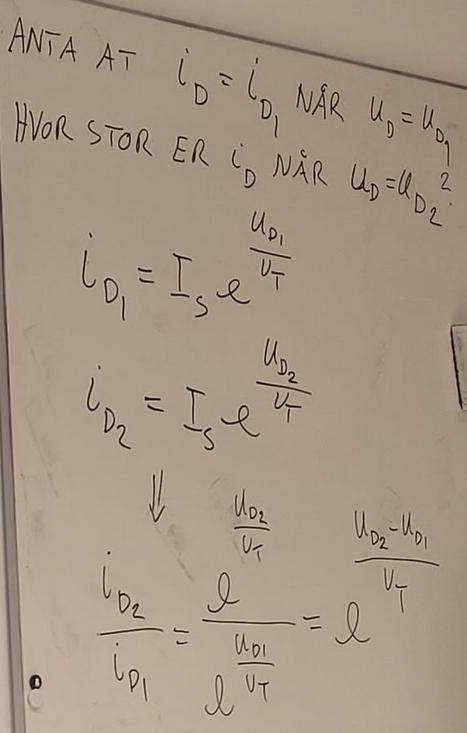 ANTA AT i_D = i_D1 NÅR u_D = u_D1
HVOR STOR ER i_D NÅR u_D = u_D2?
i_D1 = I_S e^(u_D1/U_T)
i_D2 = I_S e^(u_D2/U_T)
⇓
i_D2/i_D1 = e^(u_D2/U_T)/e^(u_D1/U_T) = e^((u_D2-u_D1)/U_T)